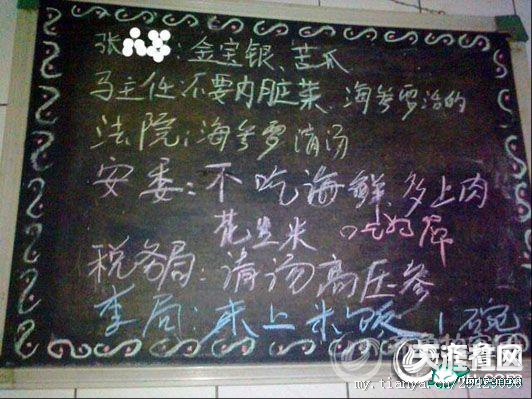 张 : 金宝银、苦瓜
马主任:不要内脏菜、海参要治的
法院:海参要清汤
安委:不吃海鲜、多上肉
花生米
税务局:清汤高压参
李局:来上米饭 1碗
天涯看网
my.tianya.cn/29429090